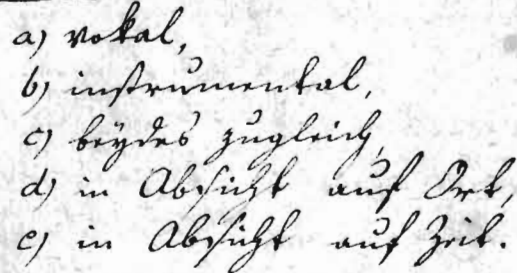 a) vokal,
b) instrumental,
c) beydes zugleich,
d) in Absicht auf Ort,
e) in Absicht auf Zeit.